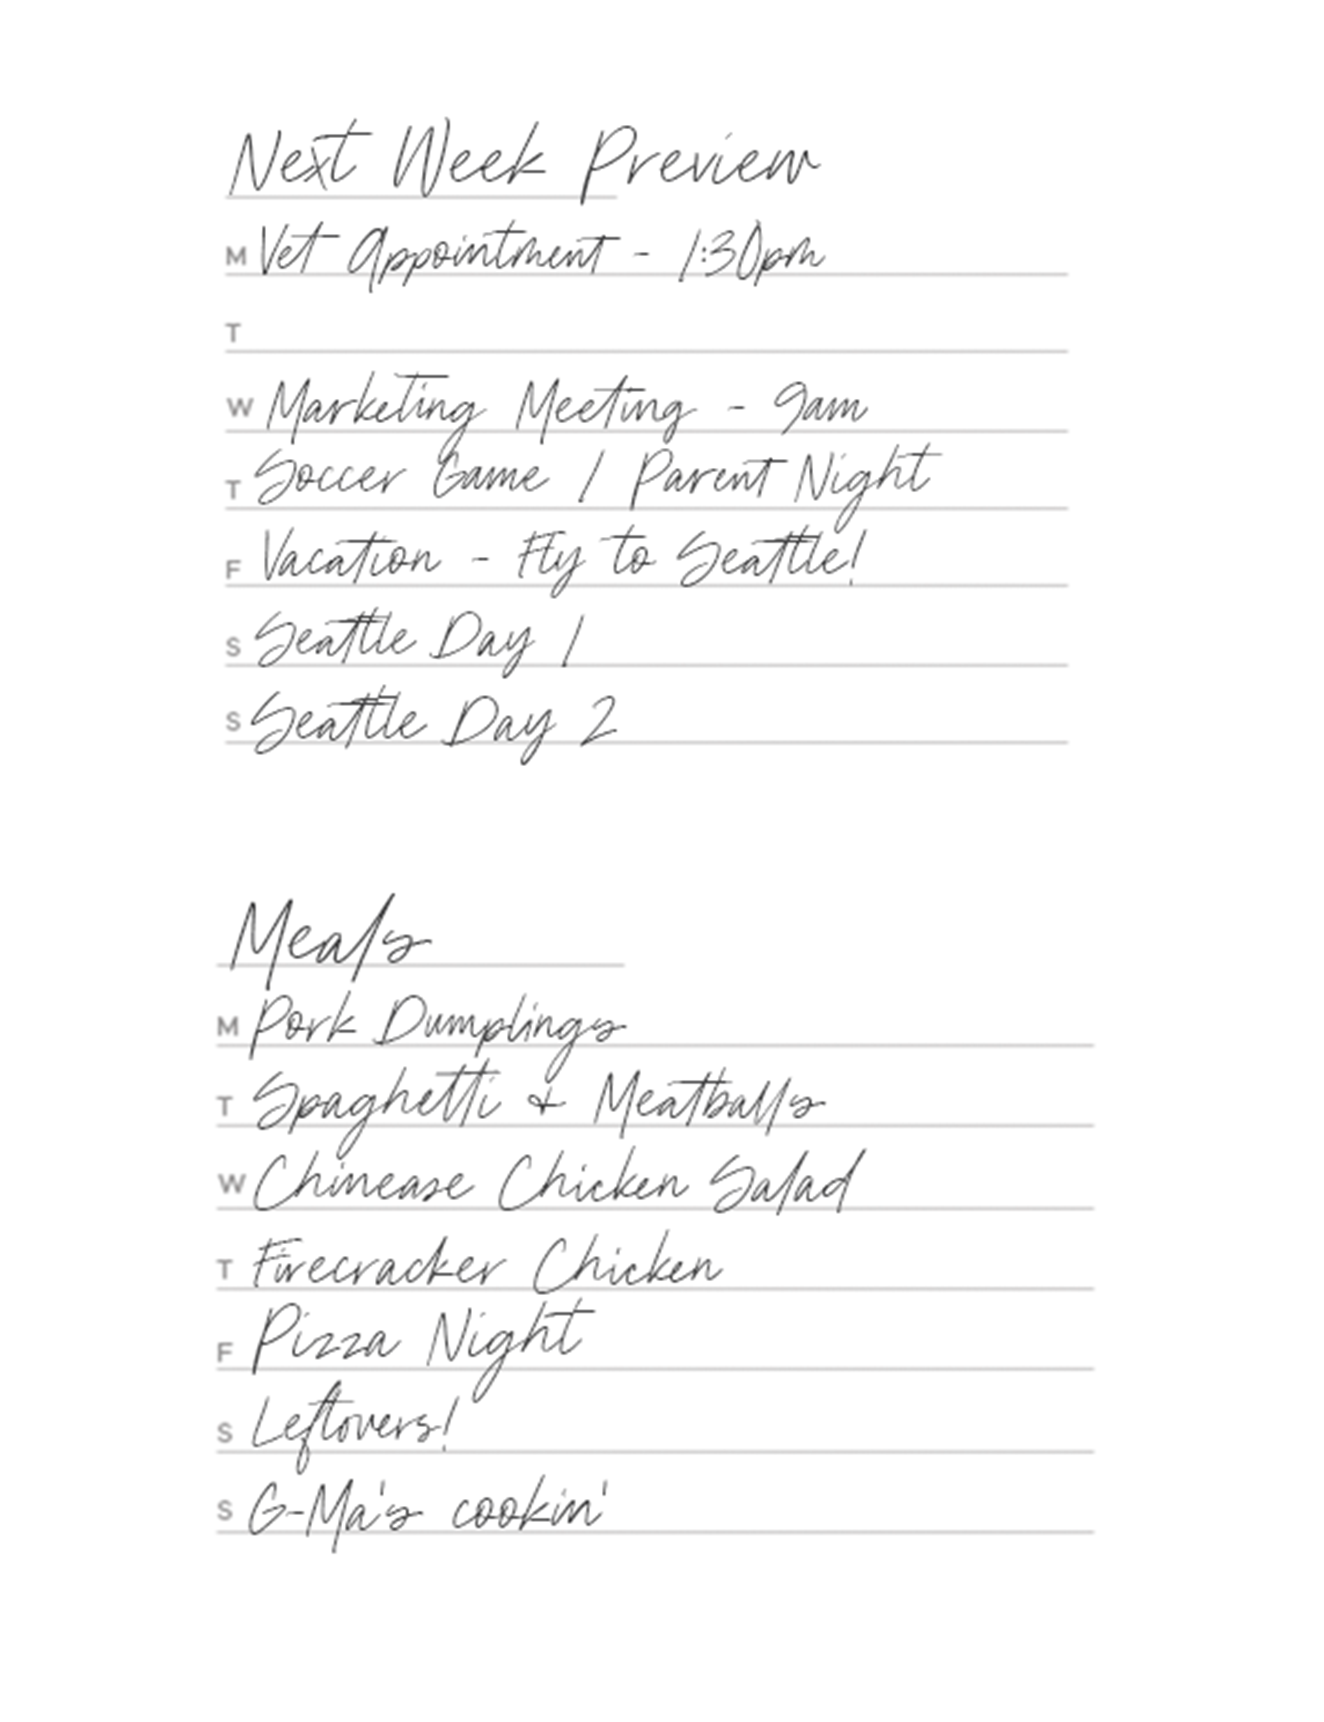 Next Week Preview
M Vet Appointment - 1:30pm
T
W Marketing Meeting - 9am
T Soccer Game / Parent Night
F Vacation - Fly to Seattle!
S Seattle Day 1
S Seattle Day 2
Meals
M Pork Dumplings
T Spaghetti & Meatballs
W Chinease Chicken Salad
T Firecracker Chicken
F Pizza Night
S Leftovers!
S G-Ma's cookin'